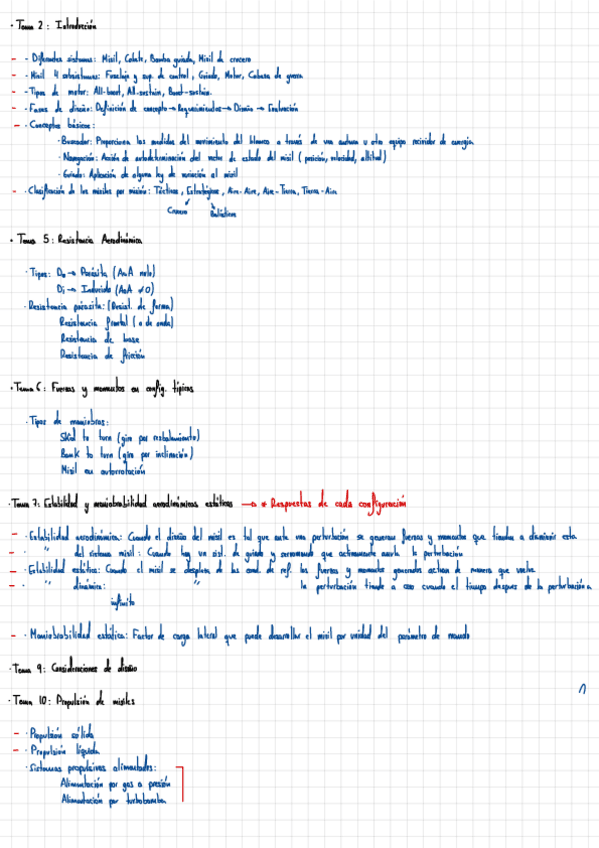 · Tema 2: Introducción
- · Diferentes sistemas: Misil, Cohete, Bomba guiada, Misil de crucero
- · Misil 4 subsistemas: Fuselaje y sup. de control, Guiado, Motor, Cabeza de guerra
- · Tipos de motor: All-boost, All-sustain, Boost-sustain.
- · Fases de diseño: Definición de concepto → Requerimientos → Diseño → Evaluación
- · Conceptos básicos:
· Buscador: Proporciona las medidas del movimiento del blanco a través de una antena u otro equipo recibidor de energía.
· Navegación: Acción de autodeterminación del vector de estado del misil (posición, velocidad, altitud)
· Guiado: Aplicación de alguna ley de variación al misil
- · Clasificación de los misiles por misión: Tácticos, Estratégicos, Aire-Aire, Aire-Tierra, Tierra-Aire
Crucero Balísticos
· Tema 5: Resistencia Aerodinámica
· Tipos: D₀ → Parásita (AoA nulo)
Di → Inducida (AoA ≠ 0)
· Resistencia parásita: (Resist. de forma)
Resistencia frontal (o de onda)
Resistencia de base
Resistencia de fricción
· Tema 6: Fuerzas y momentos en config. típicas
· Tipos de maniobras:
Skid to turn (giro por resbalamiento)
Bank to turn (giro por inclinación)
Misil en autorrotación
· Tema 7: Estabilidad y maniobrabilidad aerodinámicas estáticas → * Respuestas de cada configuración
- · Estabilidad aerodinámica: Cuando el diseño del misil es tal que ante una perturbación se generan fuerzas y momentos que tienden a disminuir esta.
- · " del sistema misil: Cuando hay un sist. de guiado y servomando que activamente anula la perturbación
- · Estabilidad estática: Cuando el misil se desplaza de las cond. de ref. las fuerzas y momentos generados actúan de manera que vuelva
- · " dinámica: " la perturbación tiende a cero cuando el tiempo despues de la perturbación es
infinito
- · Maniobrabilidad estática: Factor de carga lateral que puede desarrollar el misil por unidad del parámetro de mando
· Tema 9: Consideraciones de diseño
· Tema 10: Propulsión de misiles
- · Propulsión sólida
- · Propulsión líquida
· Sistemas propulsivos alimentados:
Alimentación por gas a presión
Alimentación por turbobomba
1